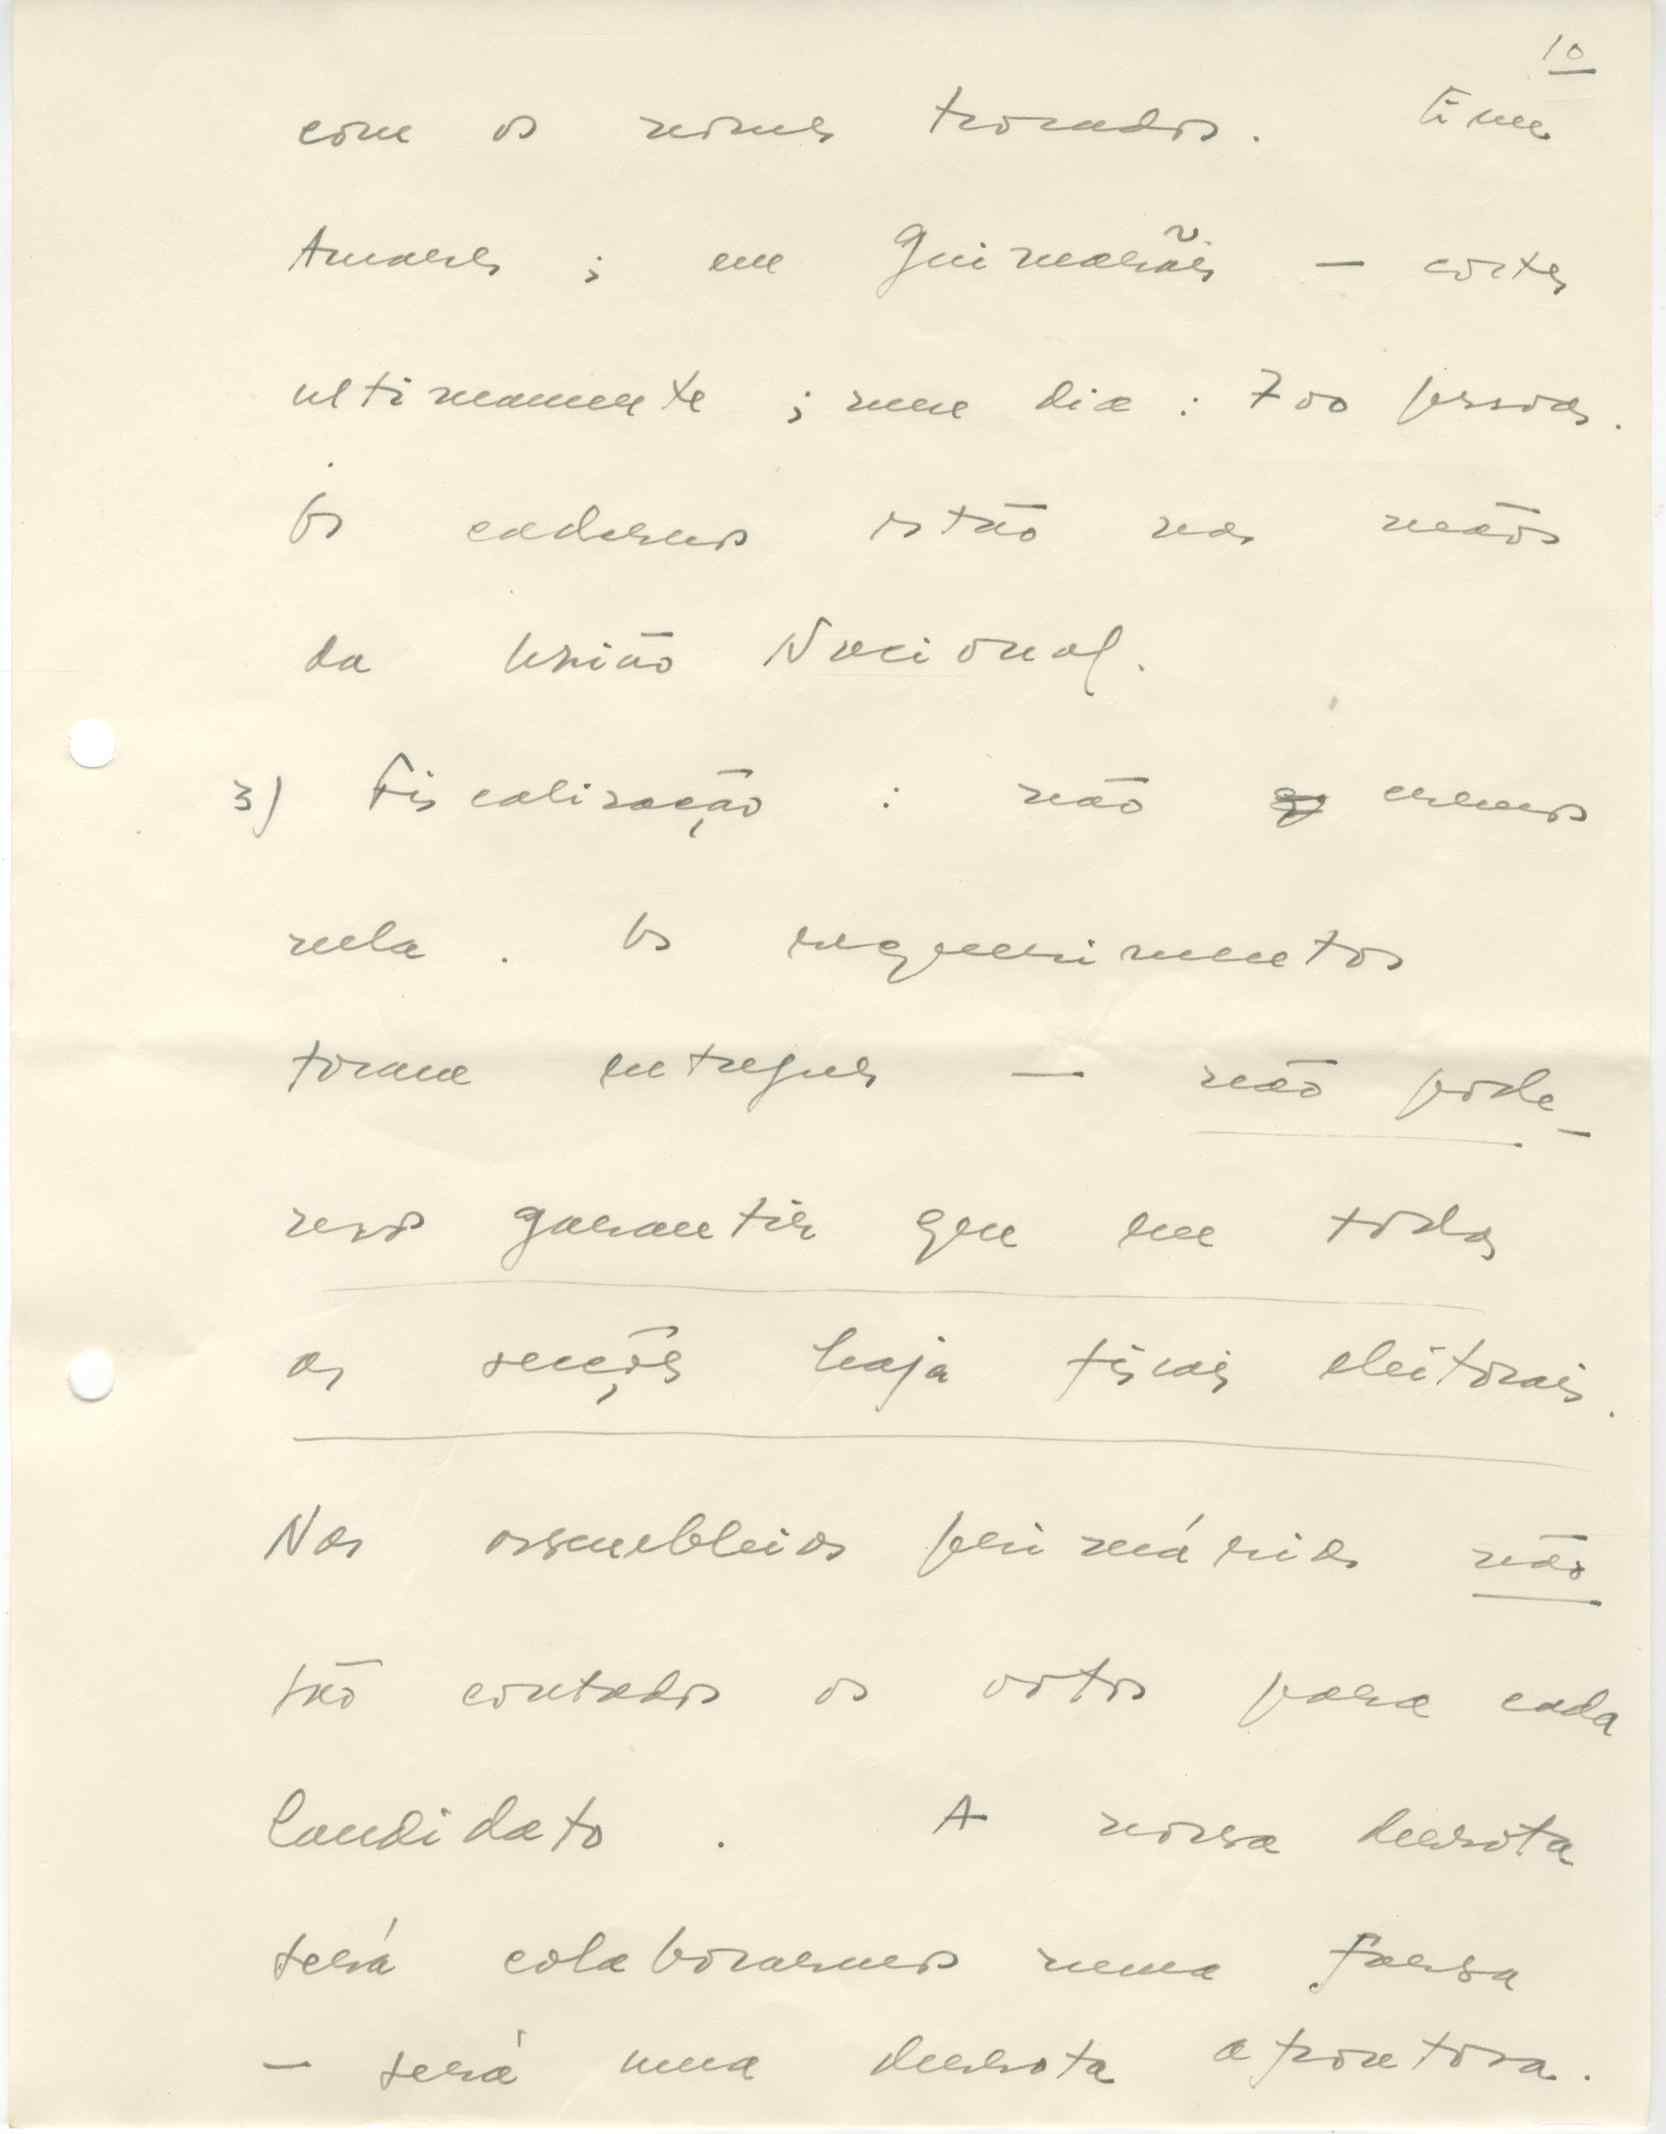 10
com os nomes trocados. Em
Amares; em Guimarães — cortes
ultimamente; num dia: 700 pessoas.
Os cadernos estão nas mãos
da União Nacional.
3) Fiscalização: não cremos
nela. Os requerimentos
foram entregues — não pode-
mos garantir que em todas
as secções haja fiscais eleitorais.
Nas assembleias primárias não
são contados os votos para cada
Candidato. A nossa derrota
será colaborarmos numa farsa
— será uma derrota afrontosa.